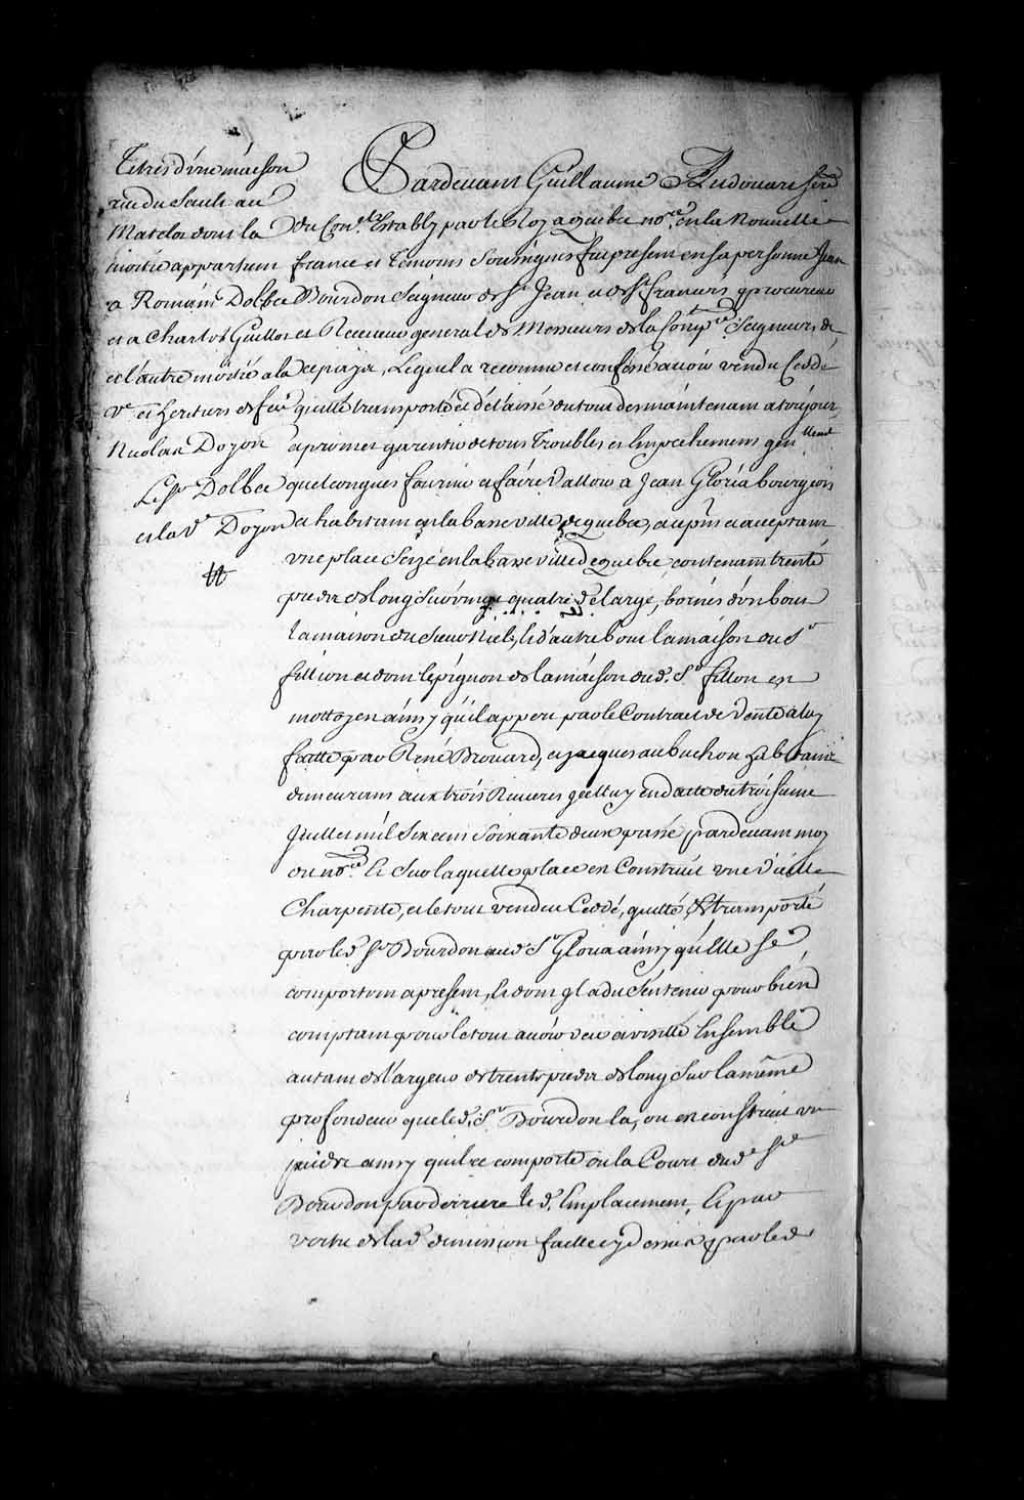 Titres d'une maison
rue du Sault au
Matelot dont la
moitié appartient
a Romain Dolbec
et a Charlot Guillot et
et l'autre moitié a la
Ve et heritiers de feu
Nicolas Doyon
Le Sr Dolbec
et la Ve Doyon
Pardevant Guillaume Audouart secre
du Con.el Estably par le Roy a quebec no.re en la Nouvelle
france et temoins soussignes fut present en sa personne Jean
Bourdon Seigneur de St Jean et de St francois procureur
et Receveur general de Messieurs de la Comp.ie Seigneurs de
ce pays, Lequel a reconnu et confessé avoir vendu Ceddé
quitté transporté et délaissé du tout des maintenant a toujour
a promis garentir de tous Troubles et Empechemens gnllement
quelconques fournir et faire valloir a Jean Gloria bourgeois
et habitant en la basse ville de quebec, a ce pnt et acceptant
une place Sizé en la basse ville de quebec contenant trente
pieds de long sur vingt quatre de large, bornés d'un bout
la maison du Sieur Niel, & d'autre bout la maison du Sr
fillion et dont le pignon de la maison dud. Sr fillon est
mottoyen ainsy qu'il appert par le Contract de Vente a luy
faitte par René Brouard, et Jacques aubuchon habitans
demeurans aux trois Rivieres en datte du troisieme
Juillet mil six cent soixante deux passé pardevant moy
du no.re & sur laquelle place est Construit une vieille
Charpente, et le tout vendu Ceddé, quitté, & transporté
par led. Sr Bourdon aud. Sr Gloria ainsy qu'Elle se
comportent a present, & dont
comptant pour le tout avoir veu et visitté Ensemble
autant de largeur de trente pieds de long sur la même
profondeur que led. Sr Bourdon la, ou est construit un
jardin ainsy qu'il se comporte en la Cour dud. Sr
Bourdon par derriere le d. Emplacement, & par
vertu de lad. demission faitte cy dessus par led.